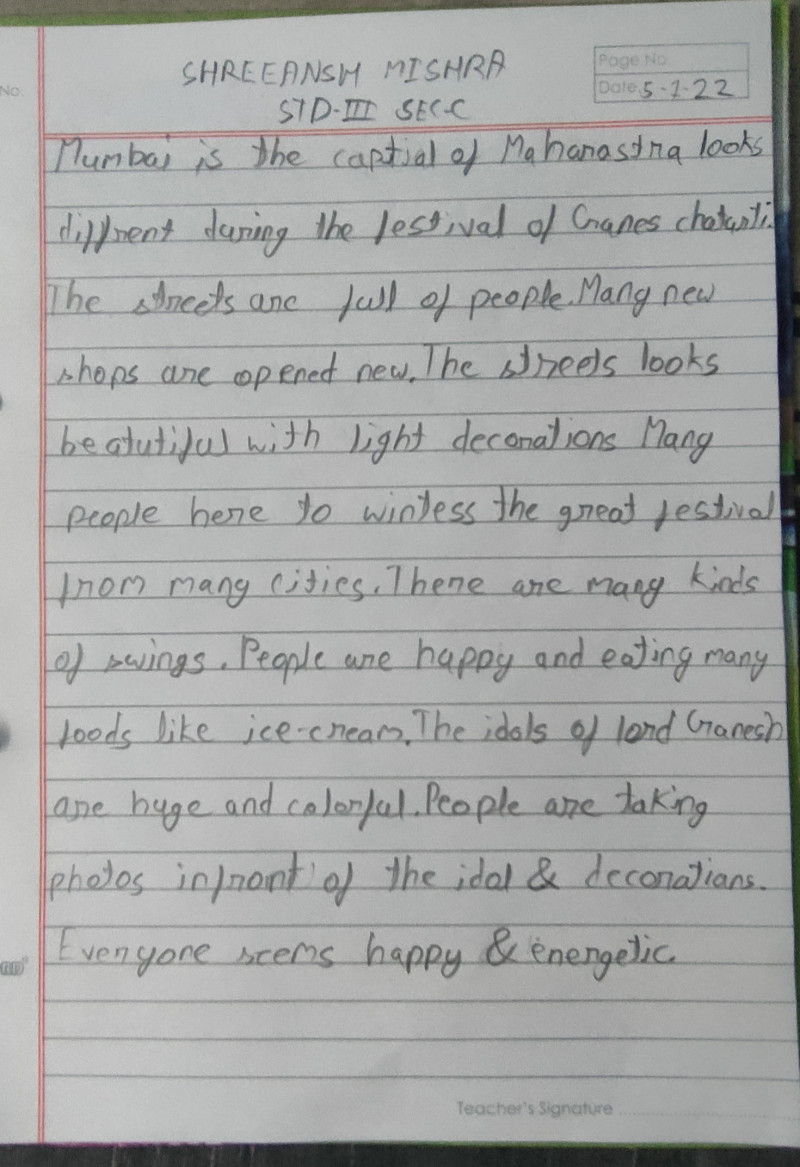 No.
SHREEANSH MISHRA
Page No.
STD-III SEC-C
Date 5-1-22
Mumbai is the captial of Maharastra looks
diffrent during the festival of Ganes chaturti.
The streets are full of people. Many new
shops are opened new. The streets looks
beatutiful with light decorations Many
people here to wintess the great festival
from many cities. There are many kinds
of swings. People are happy and eating many
foods like ice-cream. The idols of lord Ganesh
are huge and colorful. People are taking
photos infront of the idol & decorations.
Everyone seems happy & energetic.
Teacher's Signature